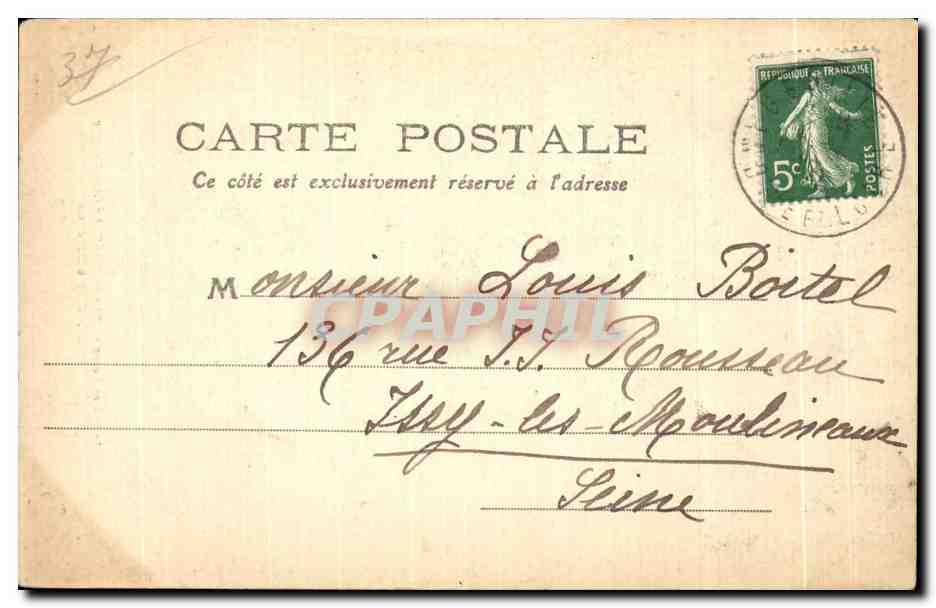 37
RÉPUBLIQUE FRANÇAISE
5c
POSTES
CARTE POSTALE
Ce côté est exclusivement réservé à l'adresse
Monsieur Louis Boitel
CPAPHIL
136 rue J.J Rousseau
Issy-les-Moulineaux
Seine